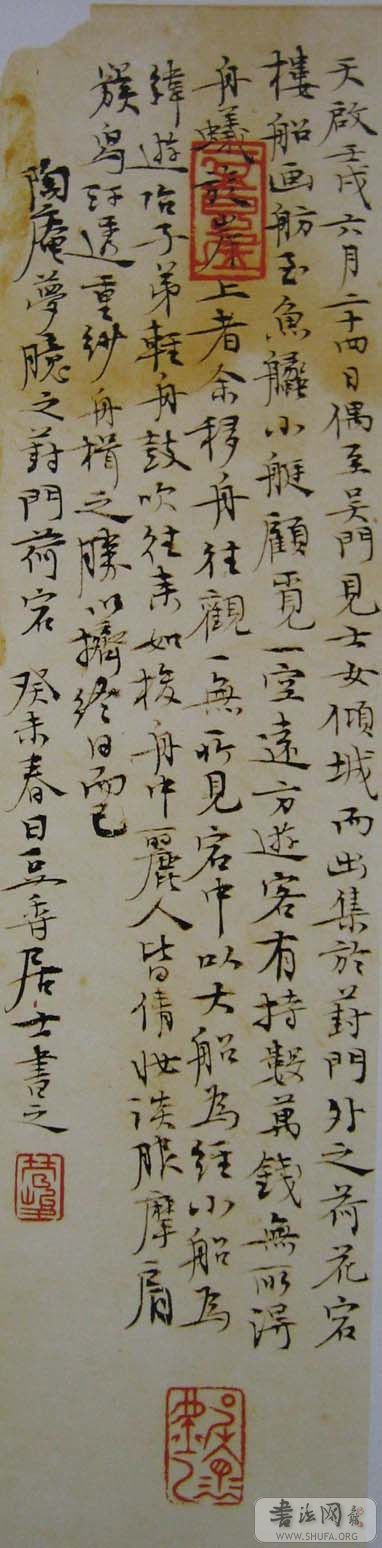 天啟壬戌六月二十四日偶至吳門見士女傾城而出集於葑門外之荷花宕
樓船画舫至魚艬小艇顧覓一空遠方遊客有持數萬錢無所得
舟蟻於岸上者余移舟往觀一無所見宕中以大船為經小船為
緯遊冶子弟輕舟鼓吹往來如梭舟中麗人皆倩妝淡服摩肩
簇舄汗透重紗舟楫之勝以擠終日而已
陶庵夢憶之葑門荷宕 癸未春日豆香居士書之
書法网
WWW.SHUFA.ORG